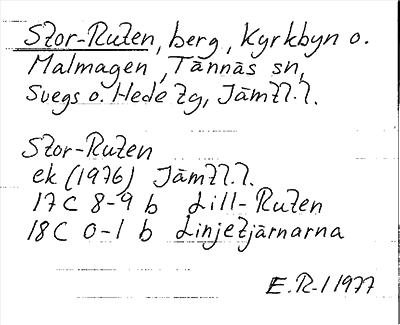 Stor-Ruten, berg, Kyrkbyn o.
Malmagen, Tännäs sn,
Svegs o. Hede tg, Jämtl.l.
Stor-Ruten
ek (1976) Jämtl.l.
17C 8-9 b Lill-Ruten
18C 0-1 b Linjetjärnarna
E.R-l 1977